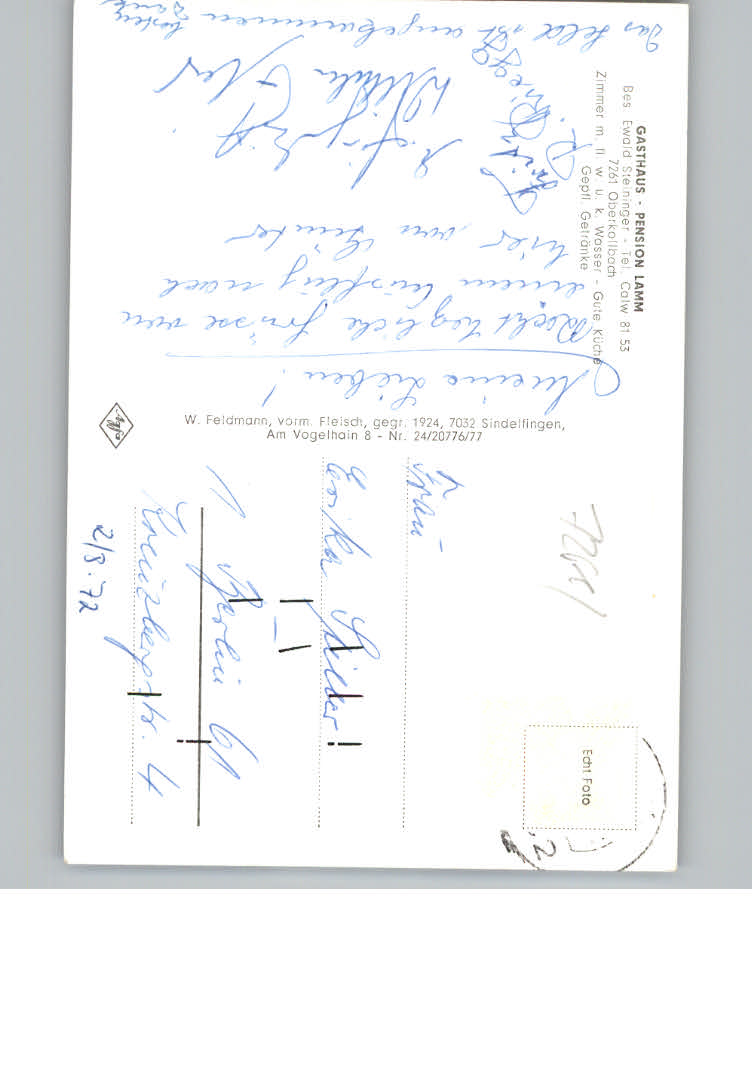 GASTHAUS - PENSION LAMM
Bes. Ewald Steininger - Tel. Calw 81 53
7261 Oberkollbach
Zimmer m. fl. w. u. k. Wasser - Gute Küche
Gepfl. Getränke
Meine Lieben!
Recht herzliche Grüsse von
einem Ausflug nach
hier von Günter
Das Geld ist angekommen
besten Dank
W. Feldmann, vorm. Fleisch, gegr. 1924, 7032 Sindelfingen,
Am Vogelhain 8 - Nr. 24/20776/77
Agfa
Frau
Erika
1 Berlin 61
Kreuzbergstr. 4
2/8.72
Echt Foto